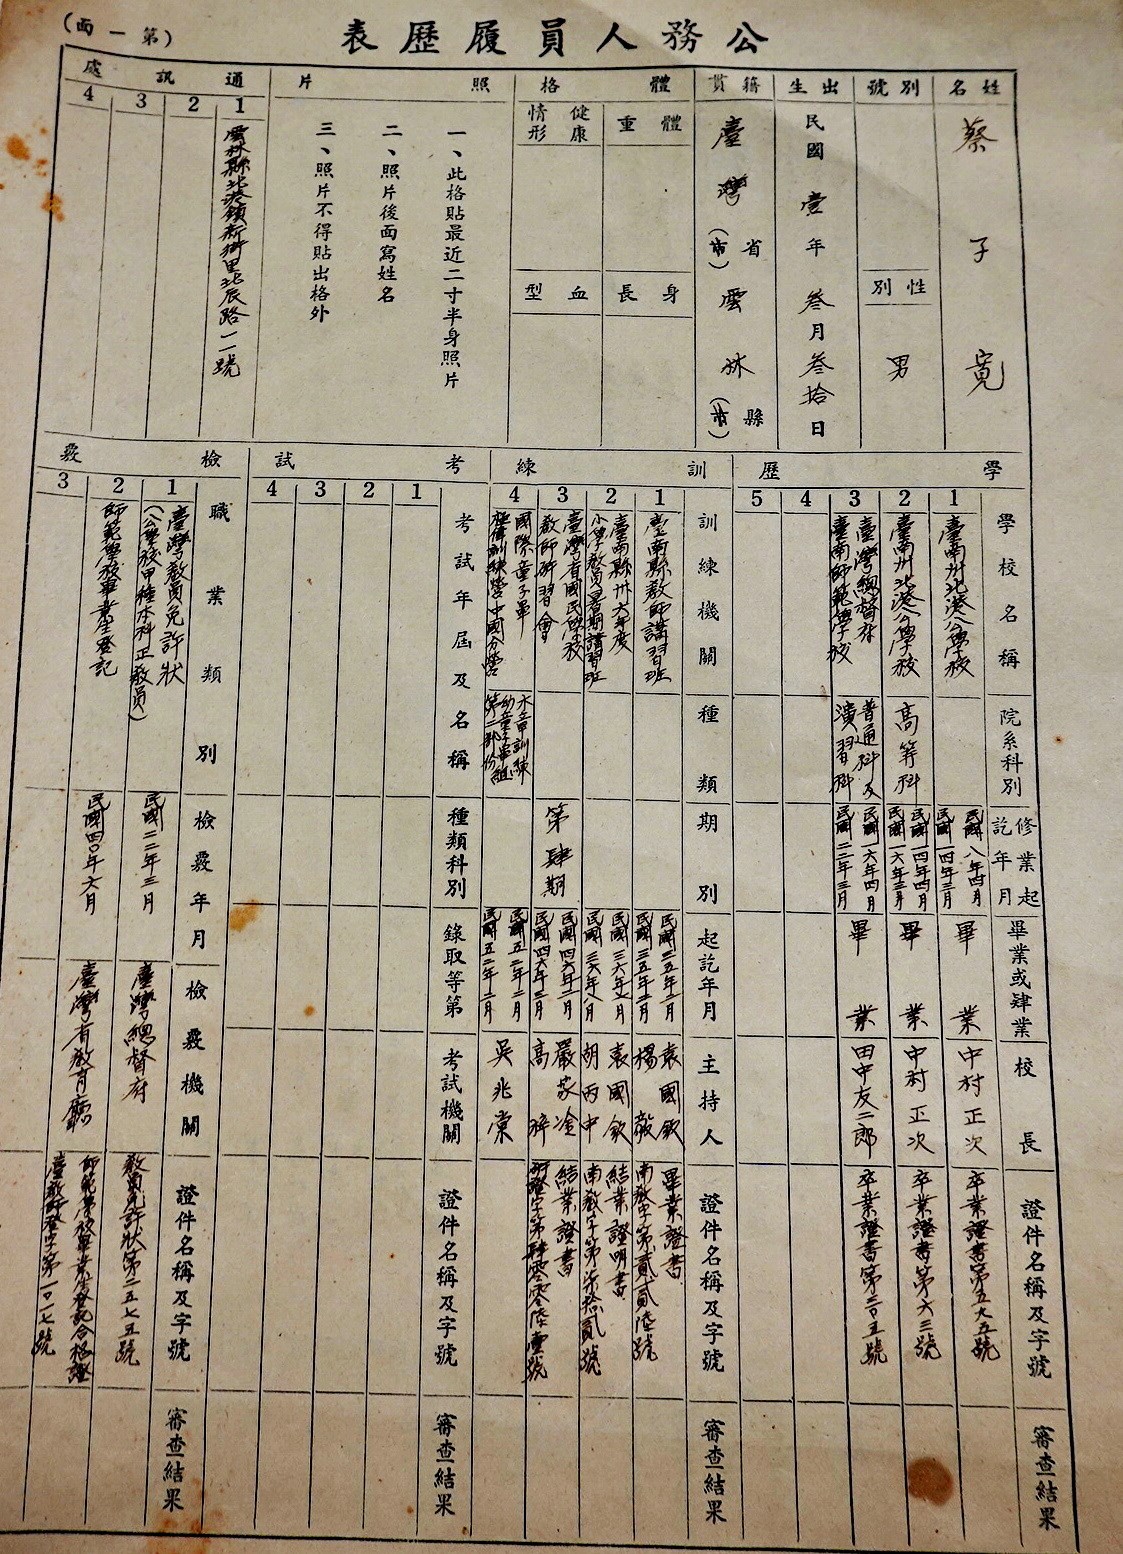 公務人員履歷表
（第一面）
姓名
蔡子寬
別號
性別
男
出生
民國壹年叁月叁拾日
籍貫
臺灣省（市）雲林縣（市）
體格
體重
健康情形
身長
血型
照片
一、此格貼最近二寸半身照片
二、照片後面寫姓名
三、照片不得貼出格外
通訊處
1
雲林縣北港鎮新街里北辰路一一號
2
3
4
學歷
學校名稱
院系科別
修業起訖年月
畢業或肄業
校長
證件名稱及字號
審查結果
1
臺南州北港公學校
民國八年四月
民國一四年三月
畢業
中村正次
卒業證書第五九五號
2
臺南州北港公學校
高等科
民國一四年四月
民國一六年三月
畢業
中村正次
卒業證書第六三號
3
臺灣總督府
臺南師範學校
普通科及
演習科
民國一六年四月
民國二二年三月
畢業
田中友二郎
卒業證書第二〇五號
4
5
訓練
訓練機關
種類
期別
起訖年月
主持人
證件名稱及字號
審查結果
1
臺南縣教師講習班
民國三五年二月
民國三五年三月
袁國欽
楊毅
畢業證書
南教字第貳貳陸號
2
臺南縣卅六年度
小學教員暑期講習班
民國三六年七月
民國三六年八月
袁國欽
胡丙申
結業證明書
南教字第柒拾貳號
3
臺灣省國民學校
教師研習會
第肆期
民國四六年二月
民國四六年三月
嚴家淦
高梓
結業證書
研證字第肆零零陸壹號
4
國際童子軍
木章訓練
幼童子軍組
第二部份
民國五二年二月
民國五二年二月
吳兆棠
考試
考試年屆及名稱
種類科別
錄取等第
考試機關
證件名稱及字號
審查結果
1
2
3
4
檢覈
職業類別
檢覈年月
檢覈機關
證件名稱及字號
審查結果
1
臺灣教員免許狀
（公學校甲種本科正教員）
民國二二年三月
臺灣總督府
教員免許狀第二五七五號
2
師範學校畢業生登記
民國四〇年六月
臺灣省教育廳
師範學校畢業生登記合格證
臺教師登字第一〇一七號
3